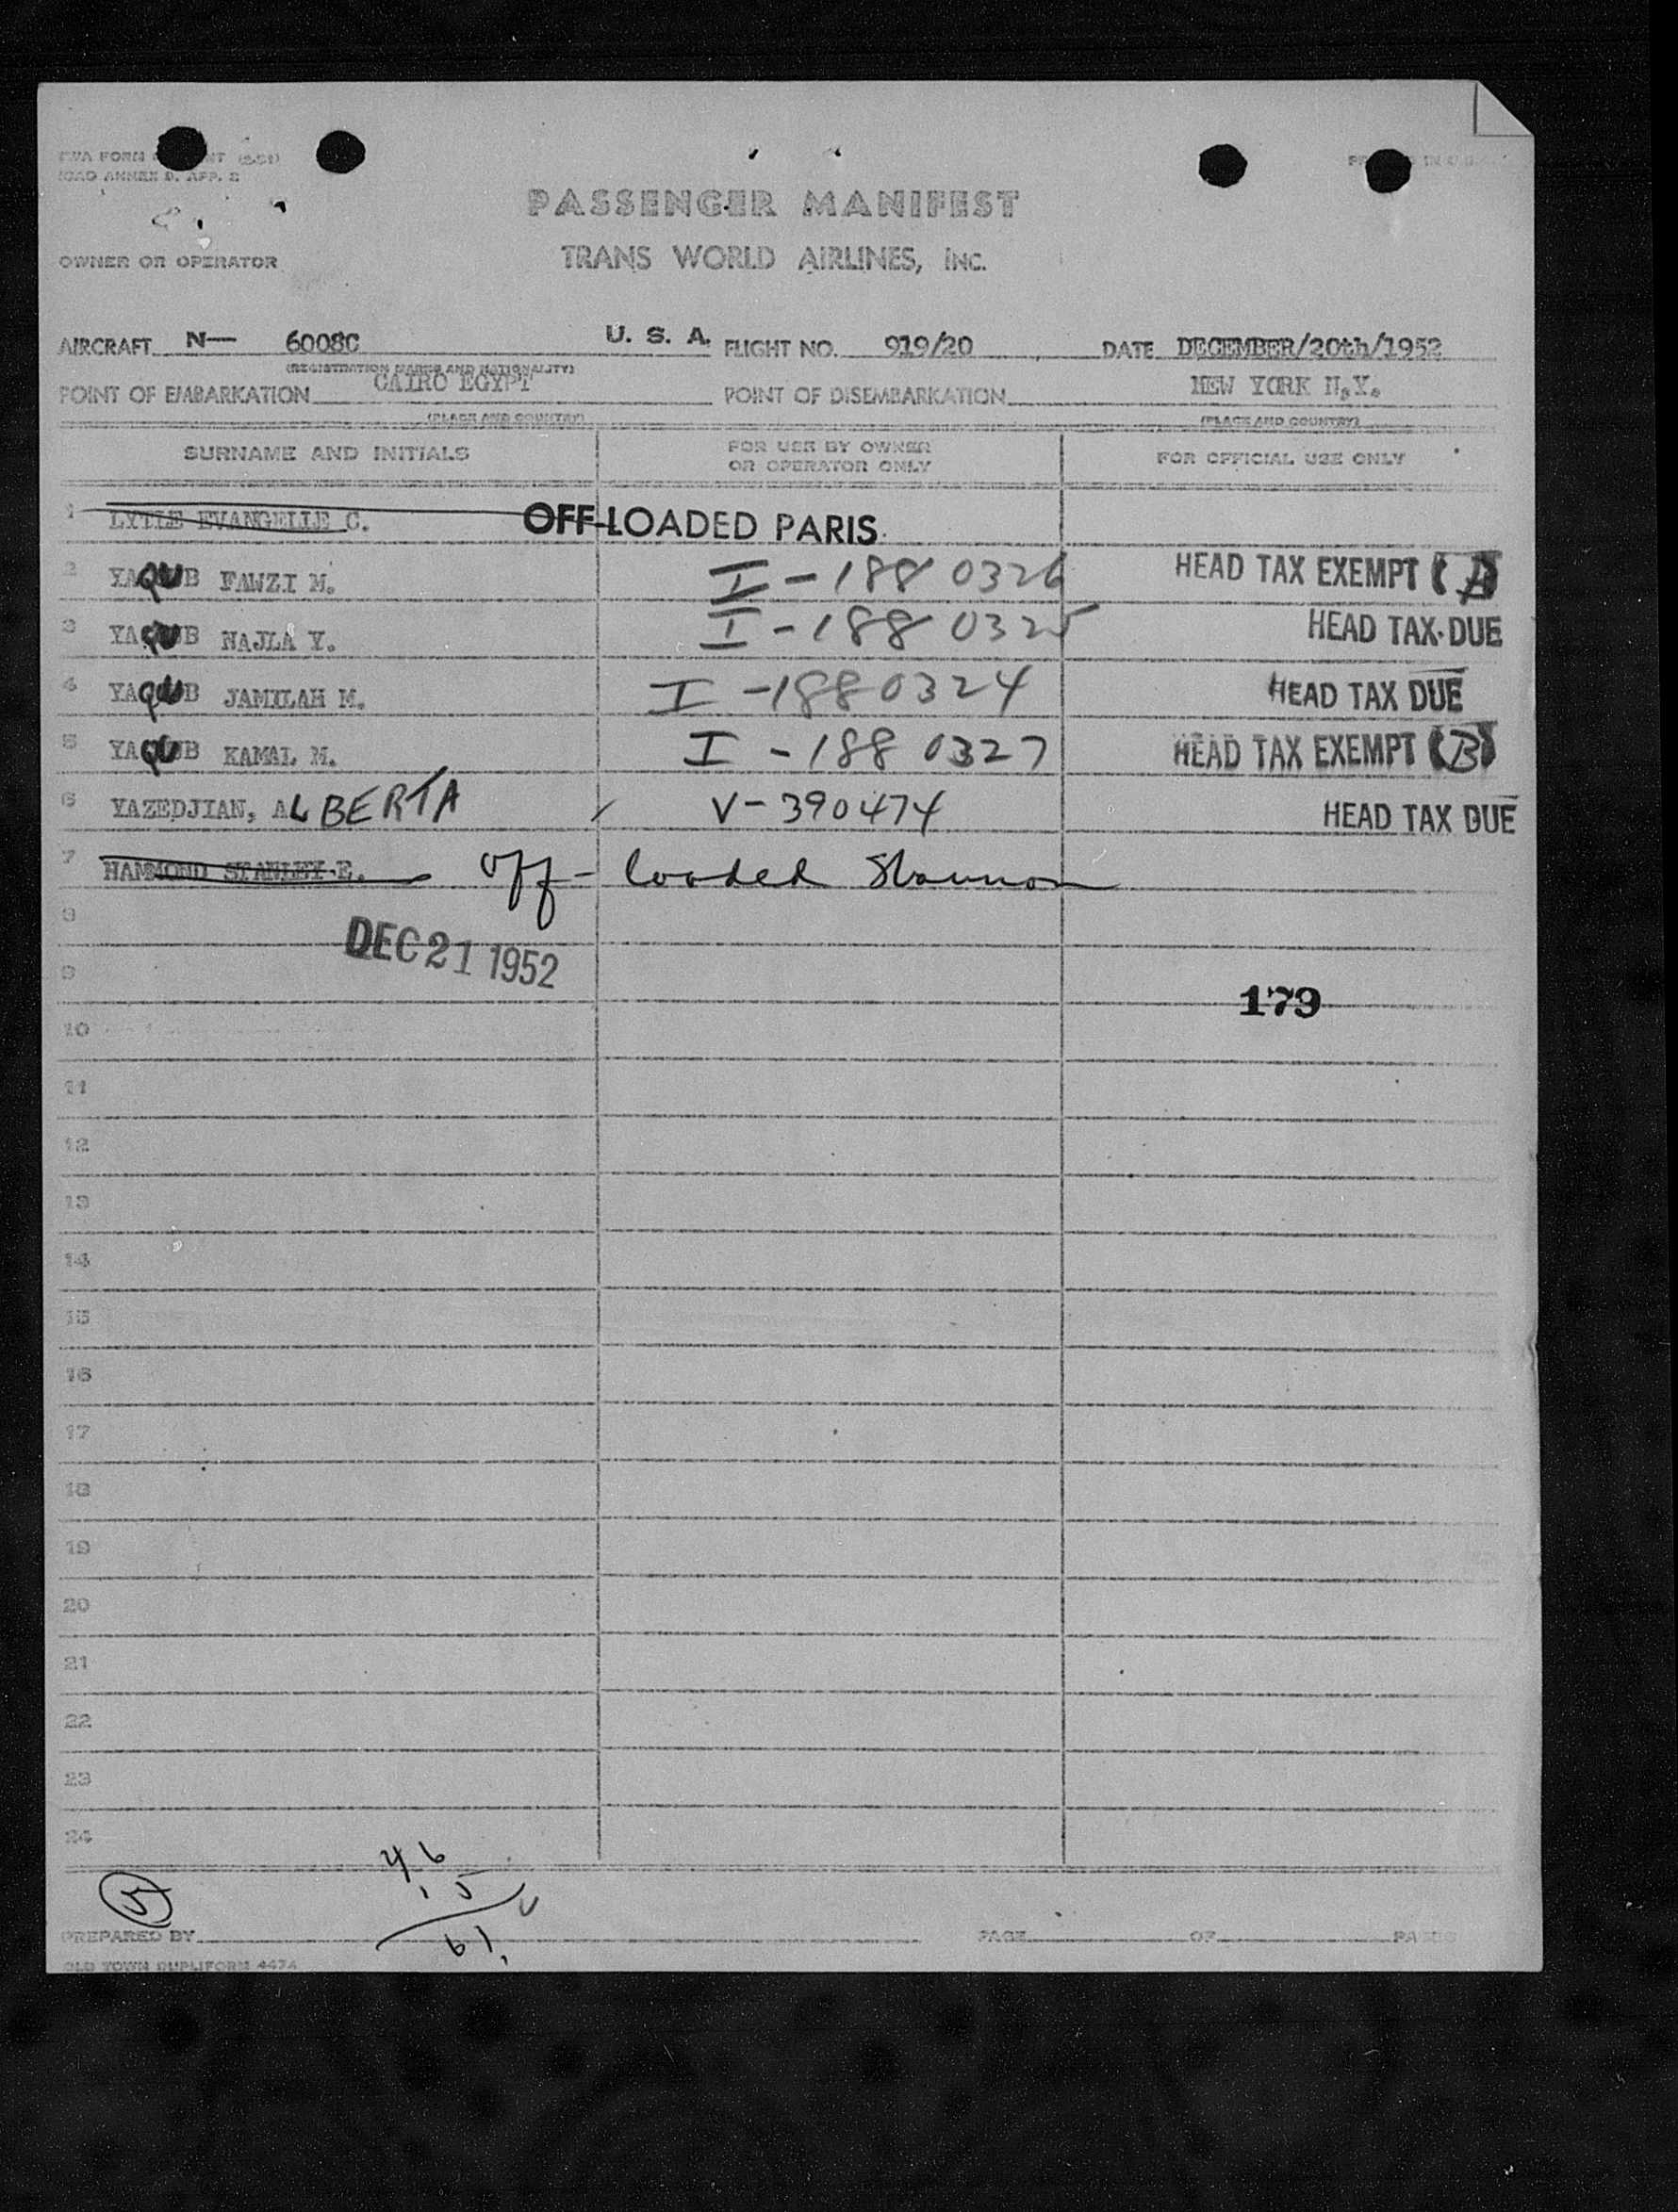 TWA FORM (5.51)
ICAO ANNEX 9, APP. 2
PASSENGER MANIFEST
OWNER OR OPERATOR
TRANS WORLD AIRLINES, INC.
AIRCRAFT N— 6008C U. S. A. FLIGHT NO. 919/20 DATE DECEMBER/20th/1952
(REGISTRATION MARKS AND NATIONALITY)
POINT OF EMBARKATION CAIRO EGYPT POINT OF DISEMBARKATION NEW YORK N.Y.
(PLACE AND COUNTRY) (PLACE AND COUNTRY)
SURNAME AND INITIALS FOR USE BY OWNER OR OPERATOR ONLY FOR OFFICIAL USE ONLY
1 LYTLE EVANGELIE C. OFF-LOADED PARIS.
2 YAQUB FAWZI M. I-1880326 HEAD TAX EXEMPT (A)
3 YAQUB NAJLA Y. I-1880325 HEAD TAX DUE
4 YAQUB JAMILAH M. I-1880324 HEAD TAX DUE
5 YAQUB KAMAL M. I-1880327 HEAD TAX EXEMPT (B)
6 YAZEDJIAN, ALBERTA V-390474 HEAD TAX DUE
7 HAMMOND STANLEY E. off-loaded Shannon
8
DEC 21 1952
9
179
10
11
12
13
14
15
16
17
18
19
20
21
22
23
24
46
5 15
61
PREPARED BY PAGE OF PAGES
OLD TOWN DUPLIFORM 4474